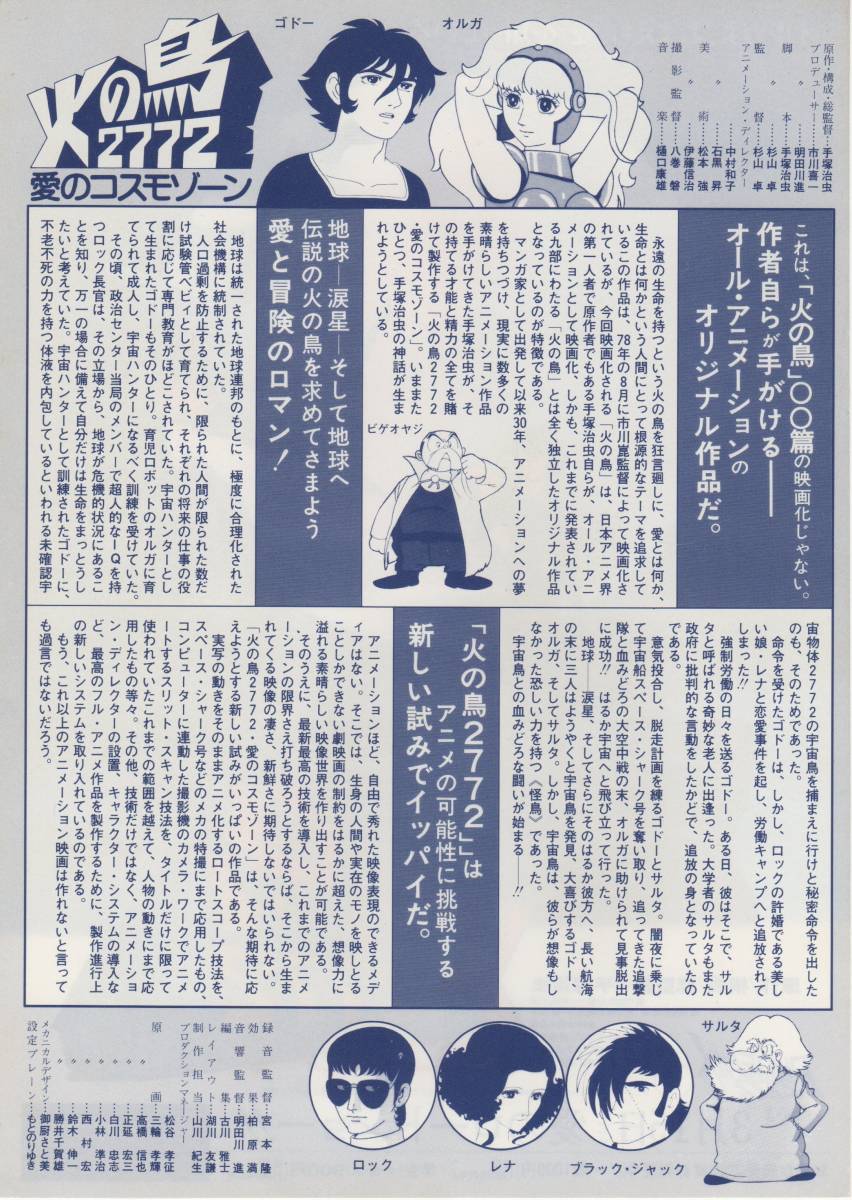 火の鳥
2772
愛のコスモゾーン
ゴドー
オルガ
原作・構成・総監督……手塚治虫
プロデューサー……市川喜一
〃……明田川進
脚本……手塚治虫
〃……杉山 卓
監督……杉山 卓
アニメーション・ディレクター
……中村和子
〃……石黒 昇
美術……松本 強
〃……伊藤信治
撮影監督……八巻 磐
音楽……樋口康雄
これは、「火の鳥」〇〇篇の映画化じゃない。
作者自らが手がける——
オール・アニメーションの
オリジナル作品だ。
永遠の生命を持つという火の鳥を狂言廻しに、愛とは何か、
生命とは何かという人間にとって根源的なテーマを追求して
いるこの作品は、78年の8月に市川崑監督によって映画化さ
れているが、今回映画化される「火の鳥」は、日本アニメ界
の第一人者で原作者でもある手塚治虫自らが、オール・アニ
メーションとして映画化、しかも、これまでに発表されてい
る九部にわたる「火の鳥」とは全く独立したオリジナル作品
となっているのが特徴である。
マンガ家として出発して以来30年、アニメーションへの夢
を持ちつづけ、現実に数多くの
素晴らしいアニメーション作品
を手がけてきた手塚治虫が、そ
の持てる才能と精力の全てを賭
けて製作する「火の鳥2772
・愛のコスモゾーン」。いままた
ひとつ、手塚治虫の神話が生ま
れようとしている。
ビゲオヤジ
地球—涙星—そして地球へ
伝説の火の鳥を求めてさまよう
愛と冒険のロマン!
地球は統一された地球連邦のもとに、極度に合理化された
社会機構に統制されていた。
人口過剰を防止するために、限られた人間が限られた数だ
け試験管ベビィとして育てられ、それぞれの将来の仕事の役
割に応じて専門教育がほどこされていた。宇宙ハンターとし
て生まれたゴドーもそのひとり。育児ロボットのオルガに育
てられて成人し、宇宙ハンターになるべく訓練を受けていた。
その頃、政治センター当局のメンバーで超人的なIQを持
つロック長官は、その立場から、地球が危機的状況にあるこ
とを知り、万一の場合に備えて自分だけは生命をまっとうし
たいと考えていた。宇宙ハンターとして訓練されたゴドーに、
不老不死の力を持つ体液を内包しているといわれる未確認宇
宙物体2772の宇宙鳥を捕まえに行けと秘密命令を出した
のも、そのためであった。
命令を受けたゴドーは、しかし、ロックの許婚である美し
い娘・レナと恋愛事件を起し、労働キャンプへと追放されて
しまった!!
強制労働の日々を送るゴドー。ある日、彼はそこで、サル
タと呼ばれる奇妙な老人に出逢った。大学者のサルタもまた
政府に批判的な言動をしたかどで、追放の身となっていたの
である。
意気投合し、脱走計画を練るゴドーとサルタ。闇夜に乗じ
て宇宙船スペース・シャーク号を奪い取り、追ってきた追撃
隊と血みどろの大空中戦の末、オルガに助けられて見事脱出
に成功!! はるか宇宙へと飛び立って行った。
地球——涙星、そしてさらにそのはるか彼方へ、長い航海
の末に三人はようやくと宇宙鳥を発見、大喜びするゴドー、
オルガ、そしてサルタ。しかし、宇宙鳥は、彼らが想像もし
なかった恐しい力を持つ《怪鳥》であった。
宇宙鳥との血みどろな闘いが始まる——!!
「火の鳥2772」は
アニメの可能性に挑戦する
新しい試みでイッパイだ。
アニメーションほど、自由で秀れた映像表現のできるメデ
ィアはない。そこでは、生身の人間や実在のモノを映しとる
ことしかできない劇映画の制約をはるかに超えた、想像力に
溢れる素晴らしい映像世界を作り出すことが可能である。
そのうえに、最新最高の技術を導入し、これまでのアニメ
ーションの限界さえ打ち破ろうとするならば、そこから生ま
れてくる映像の凄さ、新鮮さに期待しないではいられない。
「火の鳥2772・愛のコスモゾーン」は、そんな期待に応
えようとする新しい試みがいっぱいの作品である。
実写の動きをそのままアニメ化するロートスコープ技法を、
スペース・シャーク号などのメカの特撮にまで応用したもの、
コンピューターに連動した撮影機のカメラ・ワークでアニメ
ートするスリット・スキャン技法を、タイトルだけに限って
使われていたこれまでの範囲を越えて、人物の動きにまで応
用したもの等々。その他、技術だけではなく、アニメーショ
ン・ディレクターの設置、キャラクター・システムの導入な
ど、最高のフル・アニメ作品を製作するために、製作進行上
の新しいシステムを取り入れているのである。
もう、これ以上のアニメーション映画は作れないと言って
も過言ではないだろう。
サルタ
ブラック・ジャック
レナ
ロック
録音監督……宮本 隆
効果……柏原 満
音響監督……明田川 進
編集……古川雅士
レイアウト……湖川友謙
制作担当……山川紀生
プロダクションマネージャー
……松谷孝征
原画……三輪孝輝
〃……高橋信也
〃……正延宏三
〃……白川忠志
〃……小林準治
〃……西村 宏
〃……鈴木伸一
〃……勝井千賀雄
メカニカルデザイン……御厨さと美
設定ブレーン……もとのりゆき